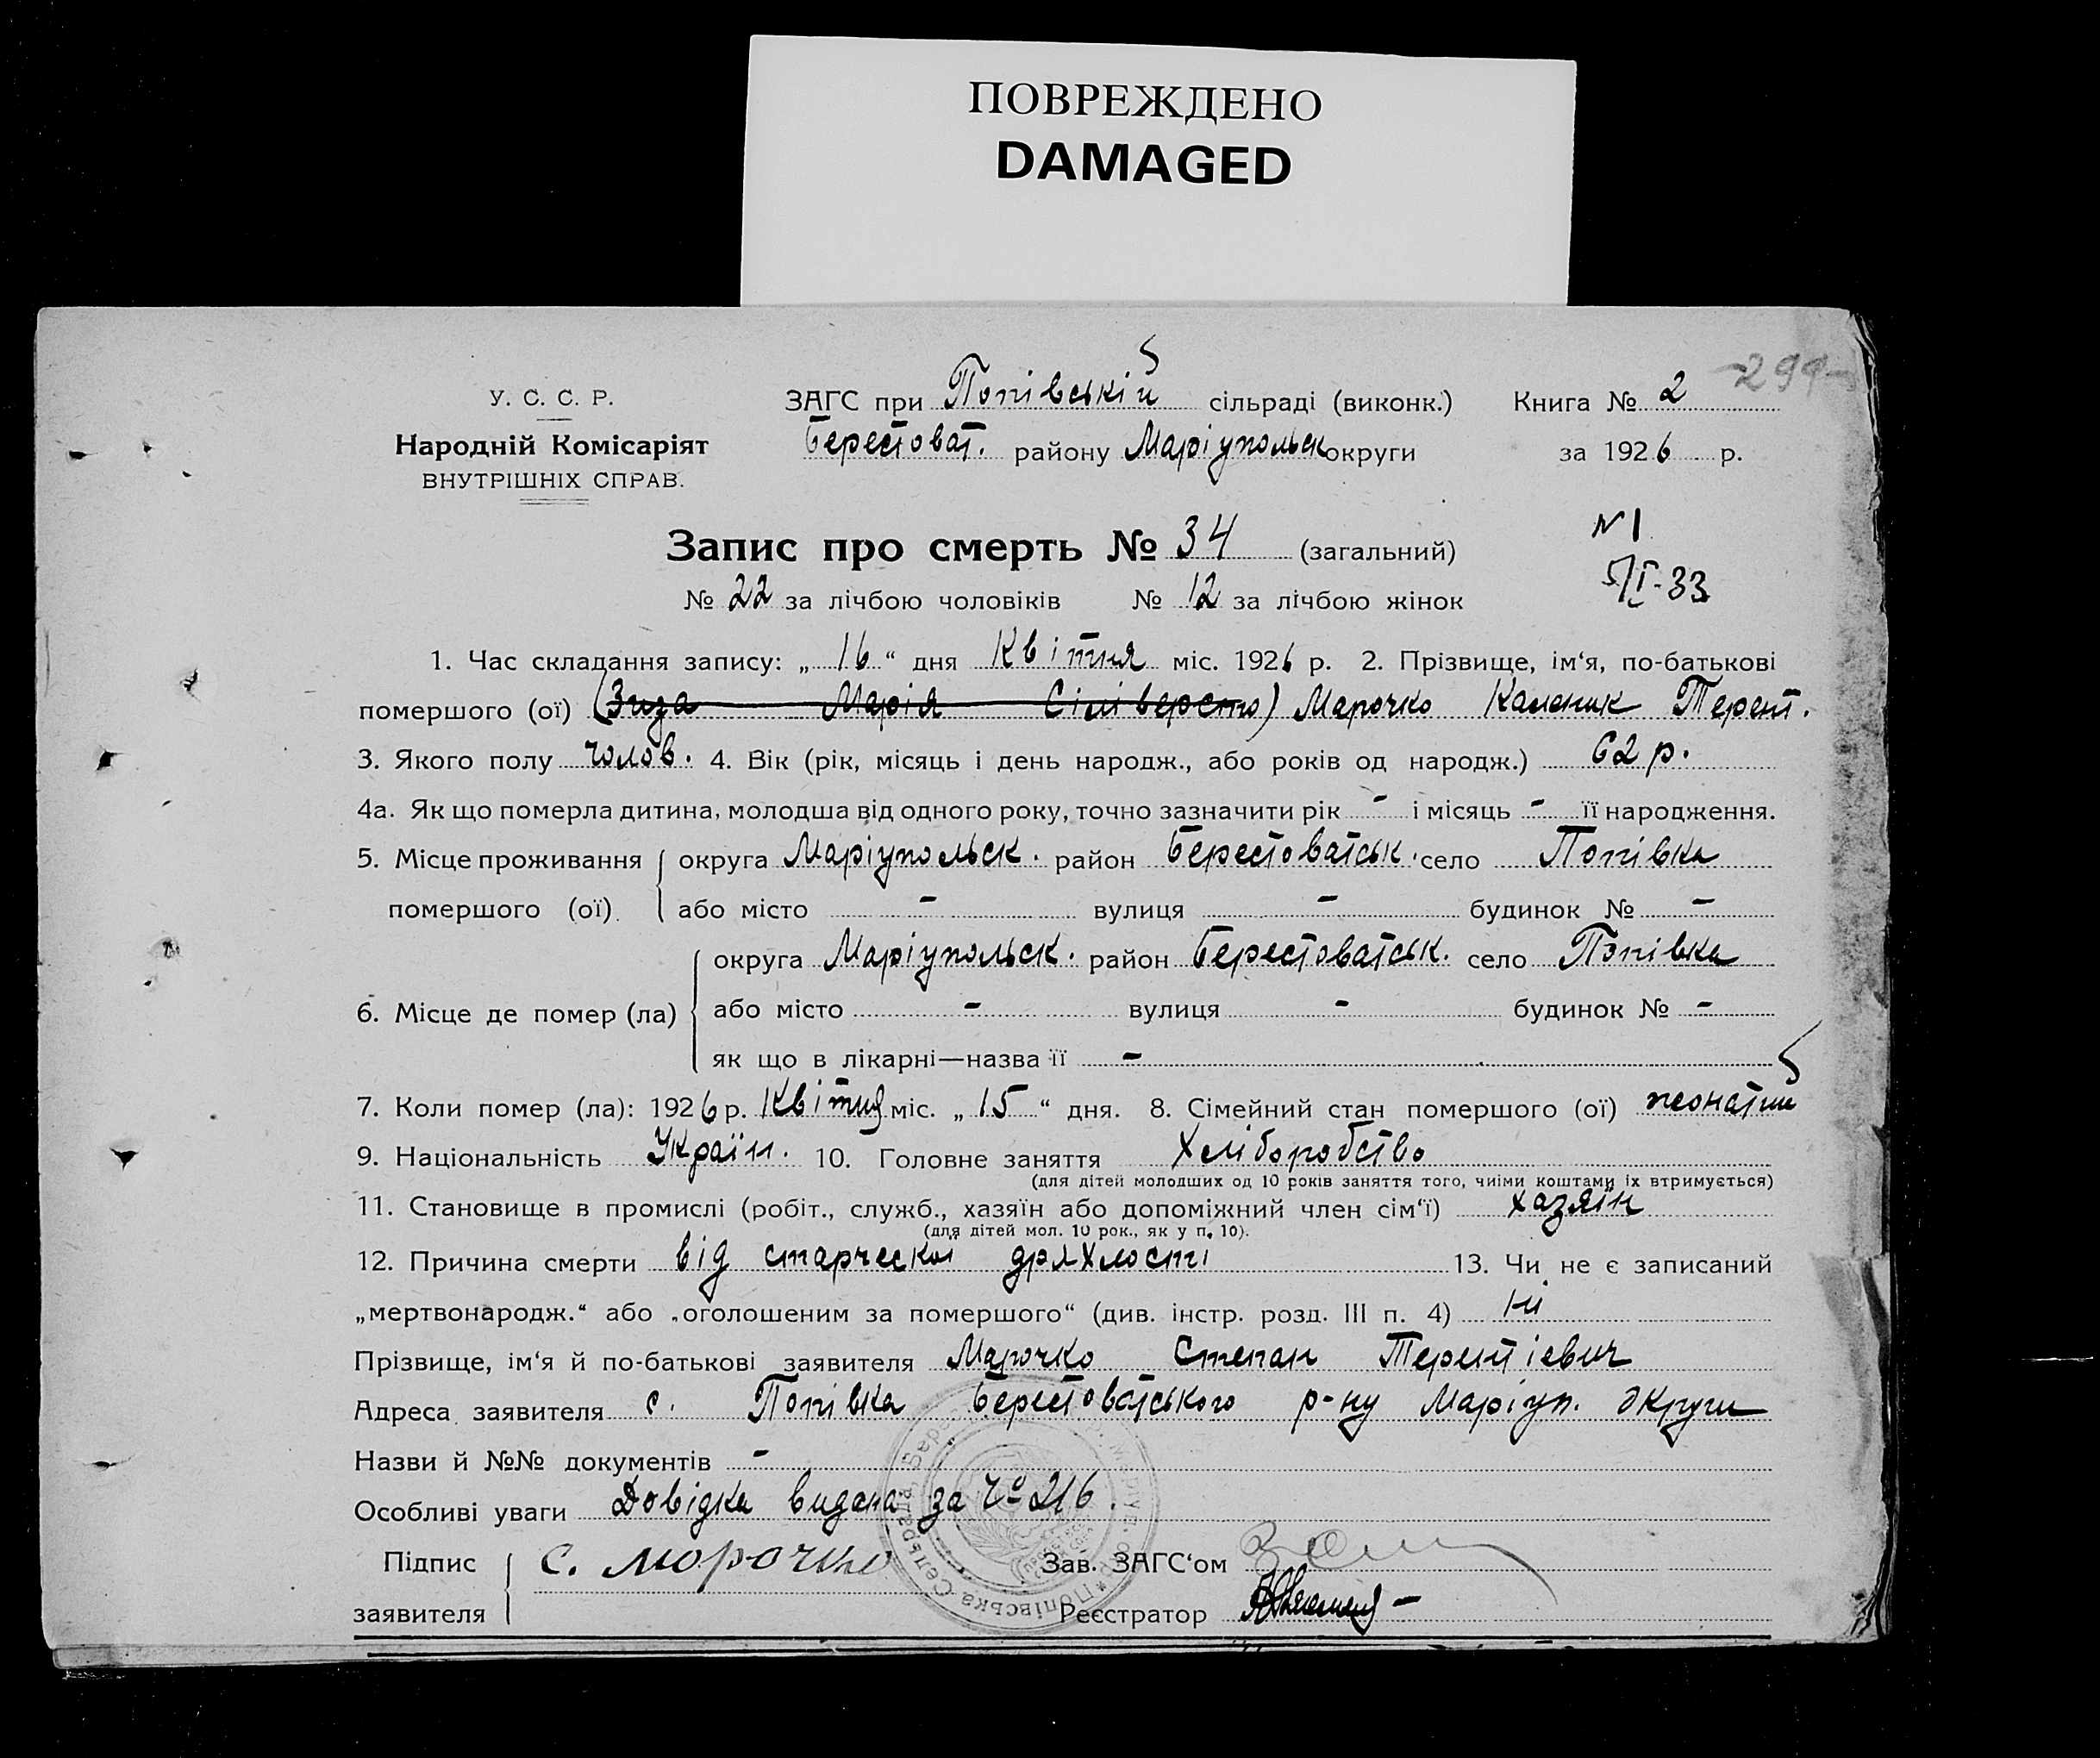 ПОВРЕЖДЕНО
DAMAGED
299
У. С. С. Р.
Народній Комісаріят
ВНУТРІШНІХ СПРАВ.
ЗАГС при Попівській сільраді (виконк.) Книга № 2
Берестоват. району Маріупольск округи за 1926 р.
Запис про смерть № 34 (загальний)
№ 22 за лічбою чоловіків № 12 за лічбою жінок
N 1
5/I-33
1. Час складання запису: „ 16 “ дня Квітня міс. 1926 р. 2. Прізвище, ім‘я, по-батькові
помершого (ої) (Зиза Марія Сілівєрстю) Марочко Каленик Терент.
3. Якого полу чолов. 4. Вік (рік, місяць і день народж., або років од народж.) 62 р.
4а. Як що померла дитина, молодша від одного року, точно зазначити рік - і місяць - її народження.
5. Місце проживання помершого (ої). округа Маріупольск. район Берестоватськ. село Попівка
або місто - вулиця - будинок № -
6. Місце де помер (ла) округа Маріупольск. район Берестоватськ. село Попівка
або місто - вулиця - будинок № -
як що в лікарні—назва її -
7. Коли помер (ла): 1926 р. Квітня міс. „ 15 “ дня. 8. Сімейний стан помершого (ої) жонатий
9. Національність Україн. 10. Головне заняття Хліборобство
(для дітей молодших од 10 років заняття того, чиїми коштами їх втримується)
11. Становище в промислі (робіт., служб., хазяїн або допоміжний член сім‘ї) хазяїн
(для дітей мол. 10 рок., як у п. 10).
12. Причина смерти від старческої дряхлості 13. Чи не є записаний
„мертвонародж.“ або „оголошеним за помершого“ (див. інстр. розд. III п. 4) ні
Прізвище, ім‘я й по-батькові заявителя Марочко Степан Терентіевич
Адреса заявителя с. Попівка Берестоватського р-ну Маріуп. округи
Назви й №№ документів -
Особливі уваги Довідка видана за Чо 216.
Підпис заявителя С. Морочко
Зав. ЗАГС‘ом
Реєстратор
Попівська Сельрада